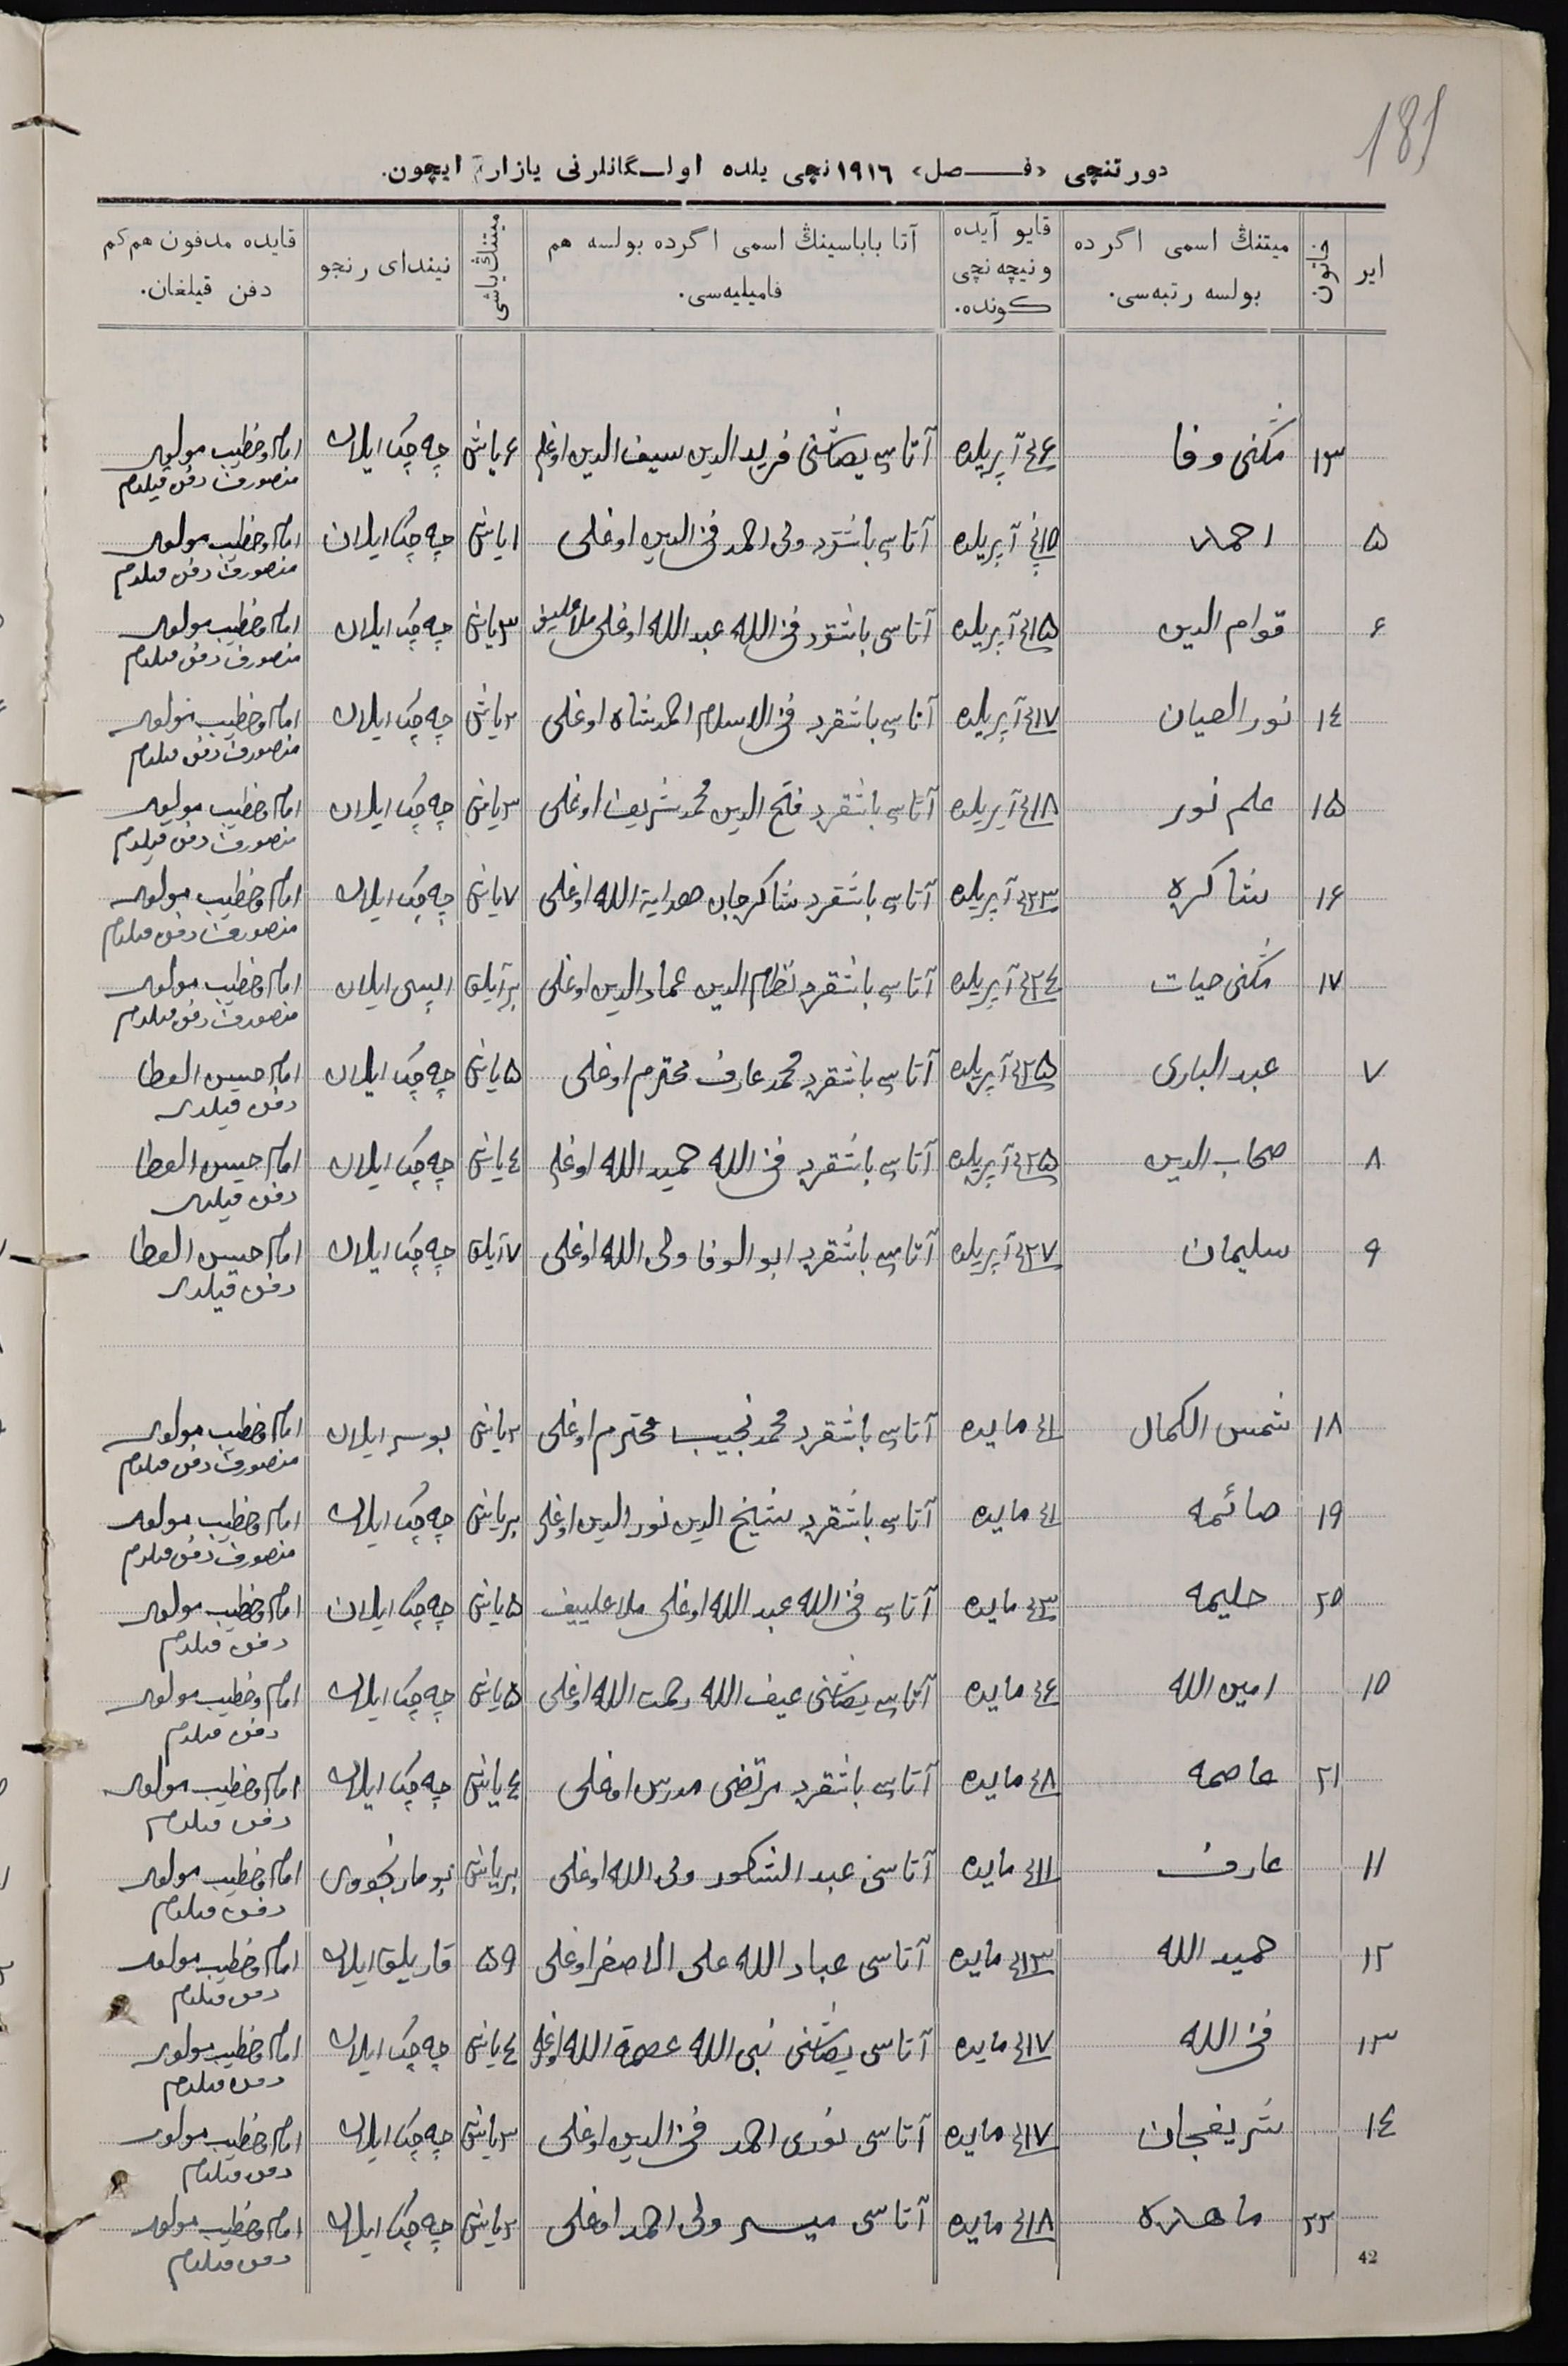 181
دورتنچی «فـــصل» ١٩١٦نچی یلده اولـگانلرنی یازارغ ایچون.
ایر
خاتون
میتنڭ اسمی اگرده بولسه رتبه‌سی.
قایو آیده و نیچه نچی کونده.
آتا باباسینڭ اسمی اگرده بولسه هم فامیلیه‌سی.
میتنڭ یاشی
نیندای رنجو
قایده مدفون هم کم دفن قیلغان.
١٣ مڭنی وفا ٦نچی آپریلده آتاسی فرید الدین سیف الدین اوغلی ٦ یاش چه چک ایلان امام و خطیب مولوی
منصوروف دفن قیلدم
۵ احمد ١٠نچی آپریلده آتاسی باشقرد ولی احمد فخر الدین اوغلی ١ یاش چه چک ایلان امام و خطیب مولوی
منصوروف دفن قیلدم
٦ قوام الدین ١۵نچی آپریلده آتاسی باشقرد فخر الله عبد الله اوغلی ٣ یاش چه چک ایلان امام و خطیب مولوی
منصوروف دفن قیلدم
١٤ نور العیان ١٧نچی آپریلده آتاسی باشقرد فخر الاسلام احمد شاه اوغلی ٢ یاش چه چک ایلان امام و خطیب مولوی
منصوروف دفن قیلدم
١۵ علم نور ١٨نچی آپریلده آتاسی باشقرد فتح الدین محمد شریف اوغلی ٣ یاش چه چک ایلان امام و خطیب مولوی
منصوروف دفن قیلدم
١٦ شاکره ٢٣نچی آپریلده آتاسی باشقرد شاکرجان هدایة الله اوغلی ٧ یاش چه چک ایلان امام و خطیب مولوی
منصوروف دفن قیلدم
١٧ مڭنی حیات ٢٤نچی آپریلده آتاسی باشقرد نظام الدین عماد الدین اوغلی بر آیلق ایلان امام و خطیب مولوی
منصوروف دفن قیلدم
٧ عبد الباری ٢۵نچی آپریلده آتاسی باشقرد محمد عارف محترم اوغلی ۵ یاش چه چک ایلان امام حبیب العطا
دفن قیلدی
٨ صحاب الدین ٢۵نچی آپریلده آتاسی باشقرد فخر الله حمید الله اوغلی ٤ یاش چه چک ایلان امام حبیب العطا
دفن قیلدی
٩ سلیمان ٢٧نچی آپریلده آتاسی باشقرد ابو الوفا ولی الله اوغلی ٧ آیلق چه چک ایلان امام حبیب العطا
دفن قیلدی
١٨ شمس الکمال ١نچی مایده آتاسی باشقرد محمد نجیب محترم اوغلی ٢ یاش ایلان امام و خطیب مولوی
منصوروف دفن قیلدم
١٩ صائمه ١نچی مایده آتاسی باشقرد شیخ الدین نور الدین اوغلی بر یاش چه چک ایلان امام و خطیب مولوی
منصوروف دفن قیلدم
٢٠ حلیمه ٣نچی مایده آتاسی فخر الله عبد الله اوغلی ملا علییف ۵ یاش چه چک ایلان امام و خطیب مولوی
دفن قیلدم
١٠ امین الله ٦نچی مایده آتاسی رحمت الله اوغلی ۵ یاش چه چک ایلان امام و خطیب مولوی
دفن قیلدم
٢١ عاصمه ٨نچی مایده آتاسی باشقرد مرتضی مدرس اوغلی ٤ یاش چه چک ایلان امام و خطیب مولوی
دفن قیلدم
١١ عارف ١١نچی مایده آتاسی عبد الشکور ولی الله اوغلی بر یاش امام و خطیب مولوی
دفن قیلدم
١٢ حمید الله ١٣نچی مایده آتاسی عباد الله علی الاصغر اوغلی ۵٩ قاریلق ایلان امام و خطیب مولوی
دفن قیلدم
١٣ فخر الله ١٧نچی مایده آتاسی نبی الله عصمة الله اوغلی ٤ یاش چه چک ایلان امام و خطیب مولوی
دفن قیلدم
١٤ شریفجان ١٧نچی مایده آتاسی نوری احمد فخر الدین اوغلی ٣ یاش چه چک ایلان امام و خطیب مولوی
دفن قیلدم
٢٢ ماهره ١٨نچی مایده آتاسی ولی احمد اوغلی ٢ یاش چه چک ایلان امام و خطیب مولوی
دفن قیلدم
42